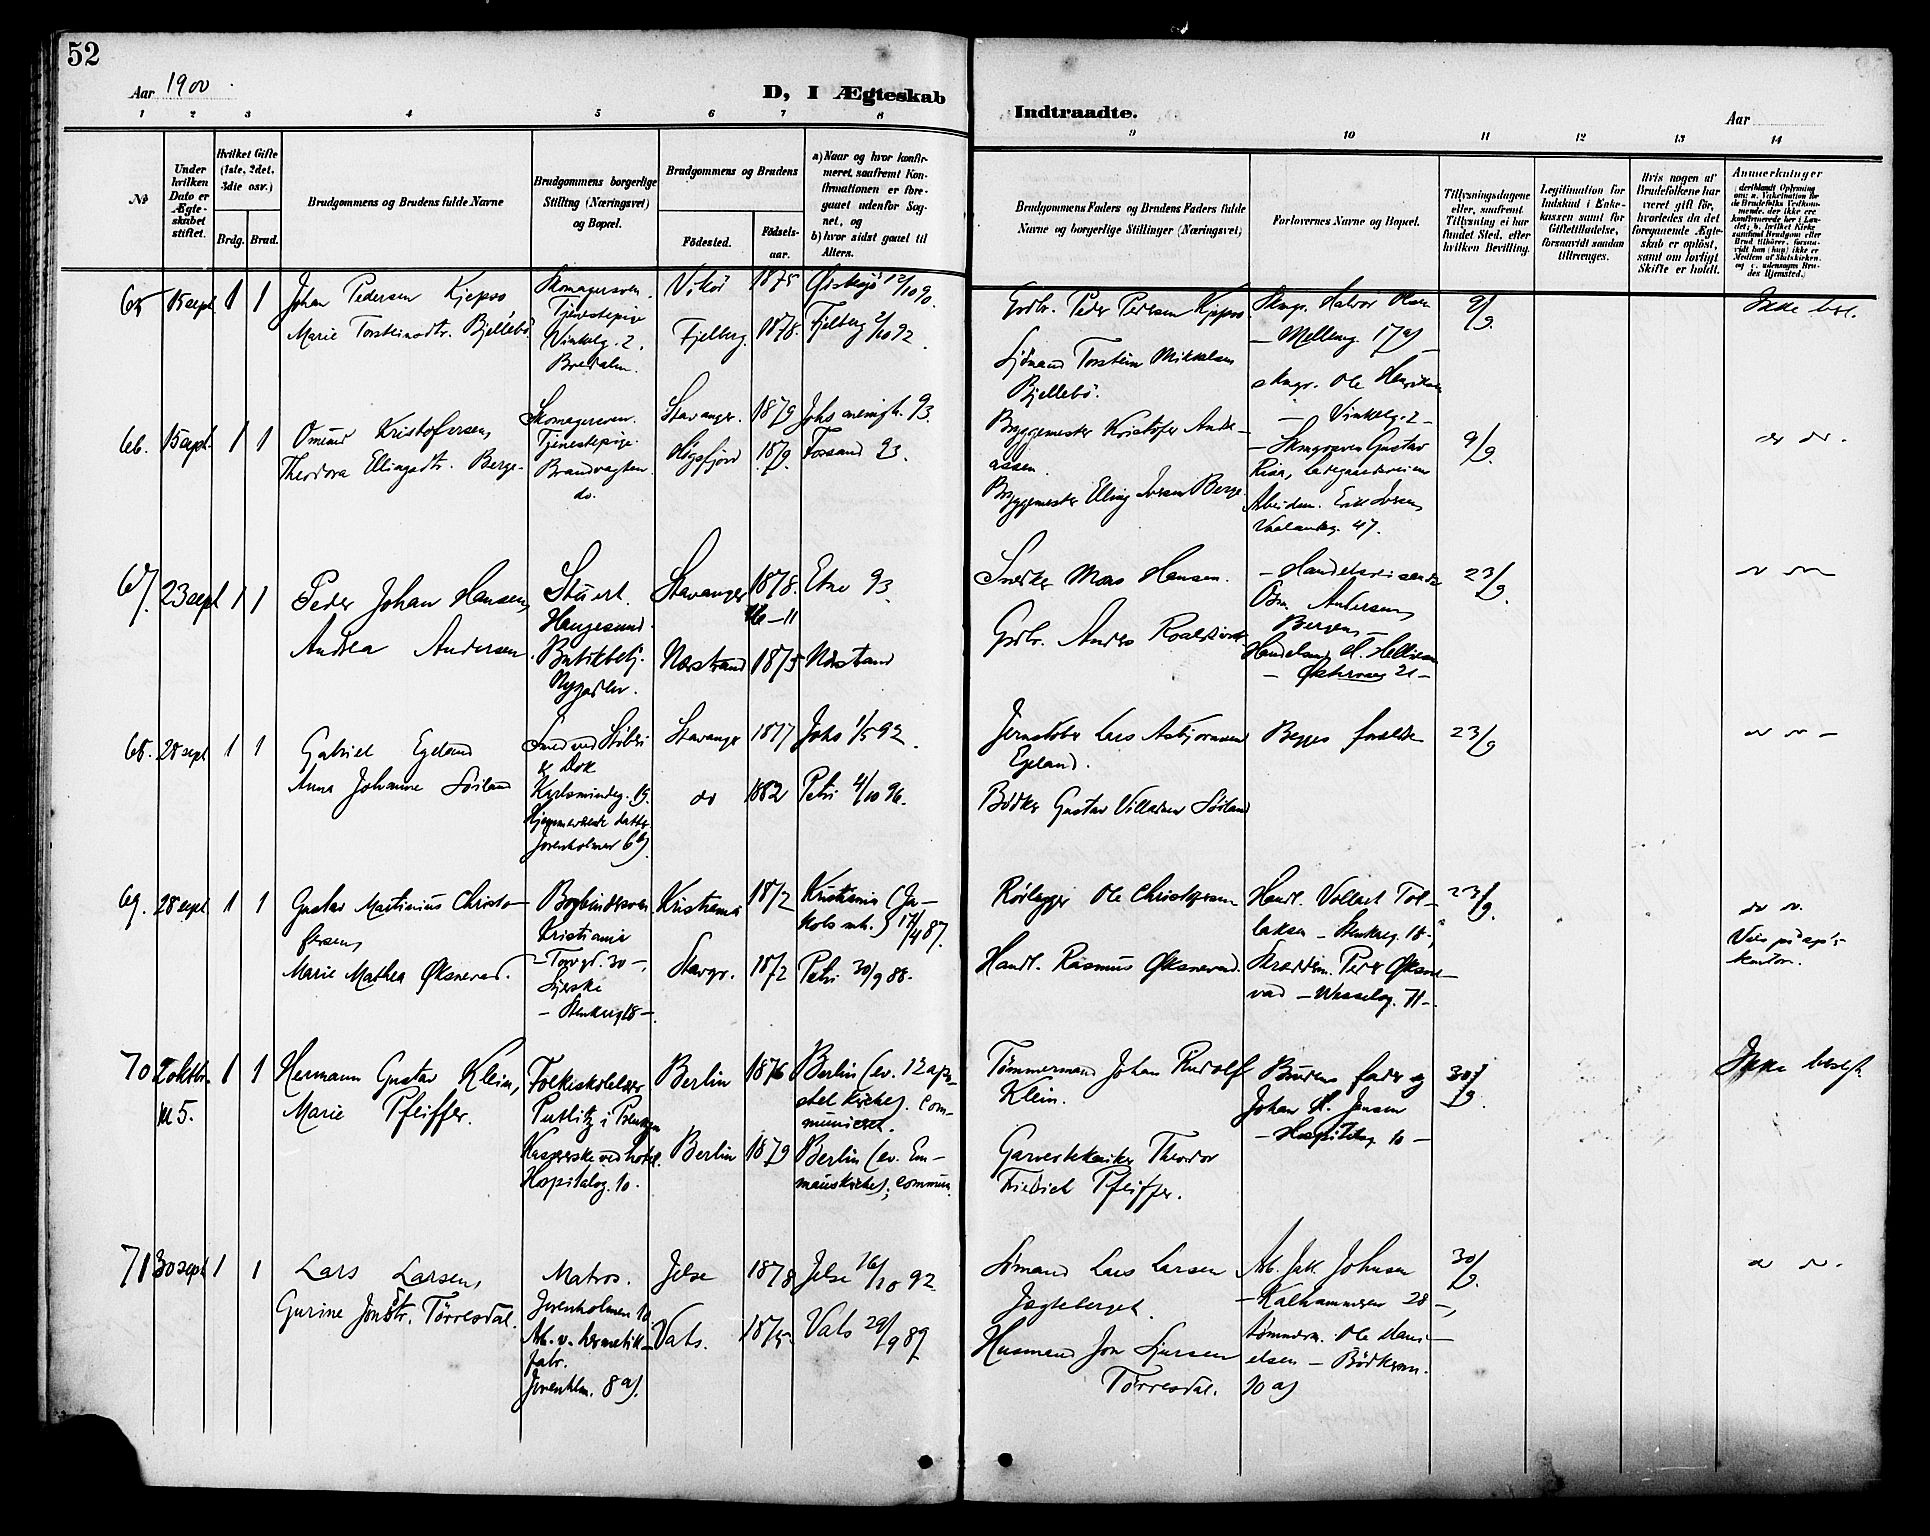 52
Aar 1900.
D, I Ægteskab
Indtraadte.
Aar
1 2 3 4 5 6 7 8 9 10 11 12 13 14
No
Under hvilken Dato er Ægteskabet stiftet.
Hvilket Gifte (1ste, 2det, 3die osv.)
Brdg. Brud.
Brudgommens og Brudens fulde Navne
Brudgommens borgerlige Stilling (Næringsvei) og Bopæl.
Brudgommens og Brudens
Födested.
Födselsaar.
a) Naar og hvor konfirmeret, saafremt Konfirmationen er foregaaet udenfor Sognet, og
b) hvor sidst gaaet til Alters.
Brudgommens Faders og Brudens Faders fulde Navne og borgerlige Stillinger (Næringsvei)
Forlovernes Navne og Bopæl.
Tillysningsdagene eller, saafremt Tillysning ei har fundet Sted, efter hvilken Bevilling.
Legitimation for Indskud i Enkekassen samt for Giftetilladelse, forsaavidt saadan tiltrænges.
Hvis nogen af Brudefolkene har været gift för, hvorledes da det foregaaende Ægteskab er oplöst, samt om lovligt Skifte er holdt.
Anmerkninger
65 15 sept 1 1
Johan Pedersen Kjepso
Marie Torsteinsdtr. Bjellebö
Skomagersven.
Tjenestepige
Vinkelg. 2.
Bredalm.
Vikör 1875
Fjelberg. 1878
12/10 90.
Fjelberg 2/10 92.
Grdbr. Peder Pedersen Kjepso.
Sjömand Torstein Mikkelsen
Bjellebö.
Skmgr. Halvor Olsen
— Melleng. 17 a)
skmgr. Ole Henriksen
— Vinkelg. 2 —
9/9.
Ikke bes.
66. 15 sept. 1 1
Omund Kristofersen,
Theodora Ellingsdtr. Berge.
Skomagersven.
Tjenestepige.
Brandvagten
do.
Stavanger. 1879
Högsfjord 1879.
Johs menigh. 93.
Forsand 93.
Byggemester Kristofer Andreassen.
Byggemester Elling Iversen Berge.
— Skmgrsven Gustav
Risa, Ladegaardsveien
Arbeidsm. Erik Iversen,
Vaalandsg. 47.
9/9.
do do.
67. 23 sept 1 1
Peder Johan Hansen,
Andrea Andersen
Stuert.
Haugesund.
Butikbetj.
Nygaden.
Stavanger 1878.
— 11
Nærstrand 1875
Etne 93.
Nærstrand
Snedker Mons Hansen.
Grdbr. Anders
— Handelsreisende
Andersen,
Bergen, —
Handelsmd
— Östervåg 21 —
23/9.
68. 28 sept 1 1
Gabriel Egeland
Anna Johanne Söiland
Smed ved Stöberi
& Dok
Karlsmindeg. 15.
Hjemmeværende datter
Jorenholmen 6 b)
Stavanger 1877
do 1882
Johs 1/5 92.
Petri 4/10 96.
Jernstöber Lars Asbjörnsen
Egeland.
Bödker Gustav Villadsen Söiland
Begges forældre
23/9
69. 28 sept 1 1
Gustav Martinius Christofersen,
Marie Mathea Öksnevad.
Bogbindersven
Kristiania
— Torvgd. 30 —,
Syerske
— Stenkarg. 18 —.
Kristiania 1872
Stavgr. 1872
Kristiania (Jakobs mh.) 17/4 87.
Petri 30/9 88.
Rörlægger Ole Christofersen
Handl. Rasmus Öksnevad.
Handl. Vollert Tollaksen — Stenkarg. 18 —,
Skræddm. Peder Öksnevad — Wesselsg. 71 —.
23/9.
do do.
70 2 oktbr. kl 5. 1 1
Hermann Gustav Klein,
Marie Pfeiffer.
Folkeskolelærer
Putlitz i Preussen
Kassererske ved hotel.
Hospitalsg. 10.
Berlin 1876
Berlin 1879
Berlin (ev. 12 apostel Kirche). communicert.
Berlin (ev. Emmauskirche); commun.
Tömmermand Johan Rudolf
Klein.
Garveritekniker Theodor
Friedrich Pfeiffer.
Brudens fader og
Johan A. Jensen
— Hospitalsg. 10 —
30/9.
Ikke bosat.
71 30 sept 1 1
Lars Larsen,
Gurine Jonsdtr. Törresdal.
Matros.
Jorenholmen 10.
Arb. v. hermetikfabr.
Jorenhlm. 8 a).
Jelse 1878
Vats. 1875.
Jelse 16/10 92.
Vats 29/9 89
Sömand Lars Larsen
Jægteberget.
Husmand Jon Sjursen
Törresdal.
Arb. Jak Johnsen
— Kalhammeren 28 —,
tömmerm. Ole Danielsen — Bödkerm.
10 a)
30/9.